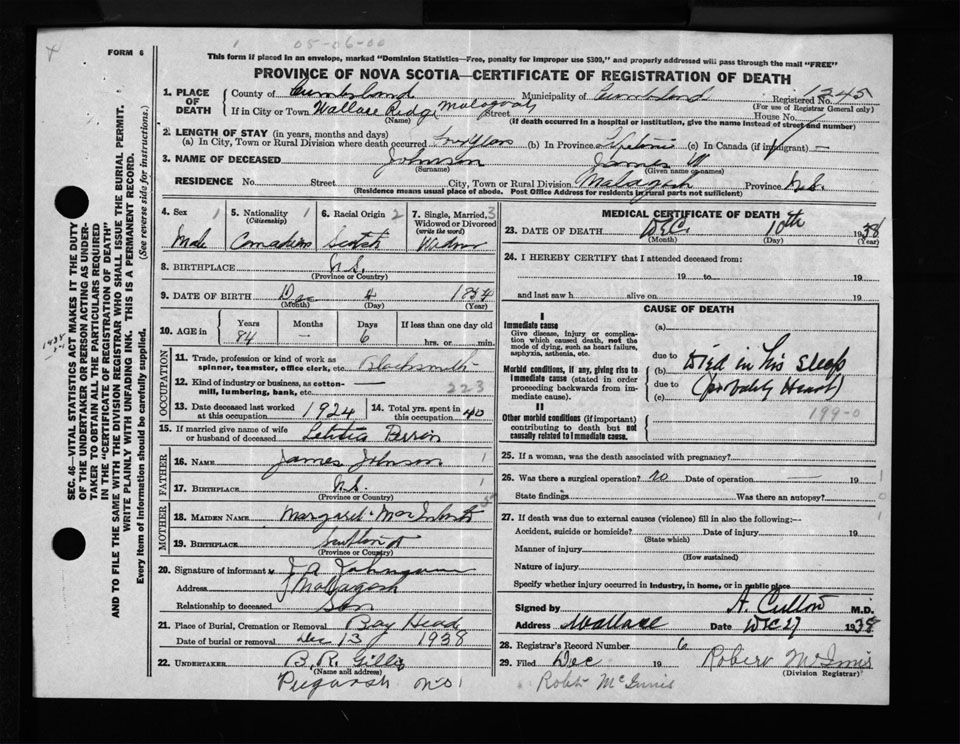 FORM 6
05-06-00
This form if placed in an envelope, marked "Dominion Statistics—Free, penalty for improper use $300," and properly addressed will pass through the mail "FREE"
PROVINCE OF NOVA SCOTIA—CERTIFICATE OF REGISTRATION OF DEATH
1. PLACE OF DEATH
County of Cumberland Municipality of Cumberland Registered No. 1245
(For use of Registrar General only)
If in City or Town Wallace Ridge Malagash Street House No.
(Name) (If death occurred in a hospital or institution, give the name instead of street and number)
2. LENGTH OF STAY (in years, months and days)
(a) In City, Town or Rural Division where death occurred (b) In Province Lifetime (c) In Canada (if immigrant) —
3. NAME OF DECEASED Johnson James W
(Surname) (Given name or names)
RESIDENCE No. Street City, Town or Rural Division Malagash Province N.S.
(Residence means usual place of abode. Post Office Address for residents in rural parts not sufficient)
4. Sex 1 5. Nationality 1 6. Racial Origin 2 7. Single, Married, 3
(Citizenship) Widowed or Divorced
(write the word)
Male Canadian Scotch Widower
8. BIRTHPLACE N.S.
(Province or Country)
9. DATE OF BIRTH Dec 4 1854
(Month) (Day) (Year)
10. AGE in Years Months Days If less than one day old
84 — 6 hrs. or min.
OCCUPATION
11. Trade, profession or kind of work as
spinner, teamster, office clerk, etc. Blacksmith
12. Kind of industry or business, as cotton-
mill, lumbering, bank, etc. — 223
13. Date deceased last worked at this occupation 1924 14. Total yrs. spent in this occupation 40
15. If married give name of wife
or husband of deceased Letitia
FATHER
16. NAME James Johnson 1
17. BIRTHPLACE N.S. 1
(Province or Country)
MOTHER
18. MAIDEN NAME Margaret
19. BIRTHPLACE Scotland
(Province or Country)
20. Signature of informant J A Johnson
Address Malagash
Relationship to deceased Son
21. Place of Burial, Cremation or Removal Bay Head
Date of burial or removal Dec 13 1938
22. UNDERTAKER B. R. Gillis
(Name and address)
Pugwash N.S
MEDICAL CERTIFICATE OF DEATH
23. DATE OF DEATH Dec 10th 1938
(Month) (Day) (Year)
24. I HEREBY CERTIFY that I attended deceased from:
19 to 19
and last saw h alive on 19
CAUSE OF DEATH
I
Immediate cause
Give disease, injury or complication which caused death, not the mode of dying, such as heart failure, asphyxia, asthenia, etc.
Morbid conditions, if any, giving rise to immediate cause (stated in order proceeding backwards from immediate cause).
II
Other morbid conditions (if important) contributing to death but not causally related to immediate cause.
(a)
due to
(b) Died in his sleep
due to (probably Heart)
(c)
199-0
25. If a woman, was the death associated with pregnancy?
26. Was there a surgical operation? no Date of operation — 19
State findings Was there an autopsy?
27. If death was due to external causes (violence) fill in also the following:—
Accident, suicide or homicide? Date of injury 19
(State which)
Manner of injury
(How sustained)
Nature of injury
Specify whether injury occurred in industry, in home, or in public place
Signed by M.D.
Address Wallace Date Dec 27 1938
28. Registrar's Record Number 6
29. Filed Dec 19 Robert McInnis
(Division Registrar)
Robt McInnis
SEC. 46—VITAL STATISTICS ACT MAKES IT THE DUTY
OF THE UNDERTAKER OR PERSON ACTING AS UNDER-
TAKER TO OBTAIN ALL THE PARTICULARS REQUIRED
IN THE "CERTIFICATE OF REGISTRATION OF DEATH"
AND TO FILE THE SAME WITH THE DIVISION REGISTRAR WHO SHALL ISSUE THE BURIAL PERMIT.
WRITE PLAINLY WITH UNFADING INK. THIS IS A PERMANENT RECORD.
Every item of information should be carefully supplied. (See reverse side for instructions.)